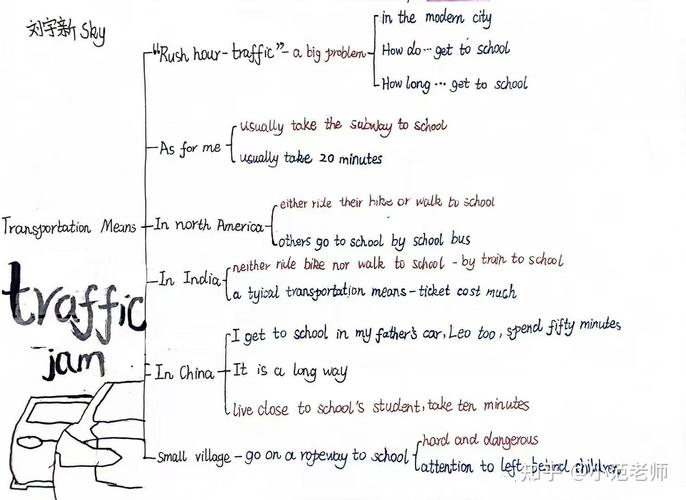 刘宇新 Sky
"Rush hour - traffic" - a big problem
in the modern city
How do … get to school
How long … get to school
As for me
usually take the subway to school
usually take 20 minutes
Transportation Means
In north America
either ride their bike or walk to school
others go to school by school bus
In India
neither ride bike nor walk to school - by train to school
a tyical transportation means - ticket cost much
traffic
jam
In China
I get to school in my father's car, Leo too, spend fifty minutes
It is a long way
live close to school's student, take ten minutes
Small village - go on a ropeway to school
hard and dangerous
attention to left behind children
知乎 @小范老师